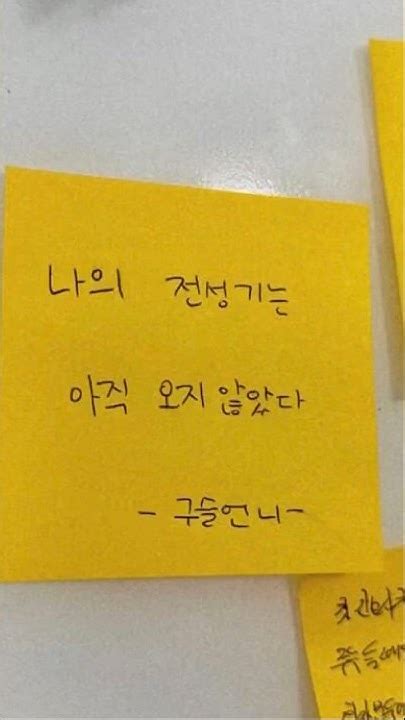 나의 전성기는
아직 오지 않았다
- 구슬언니 -